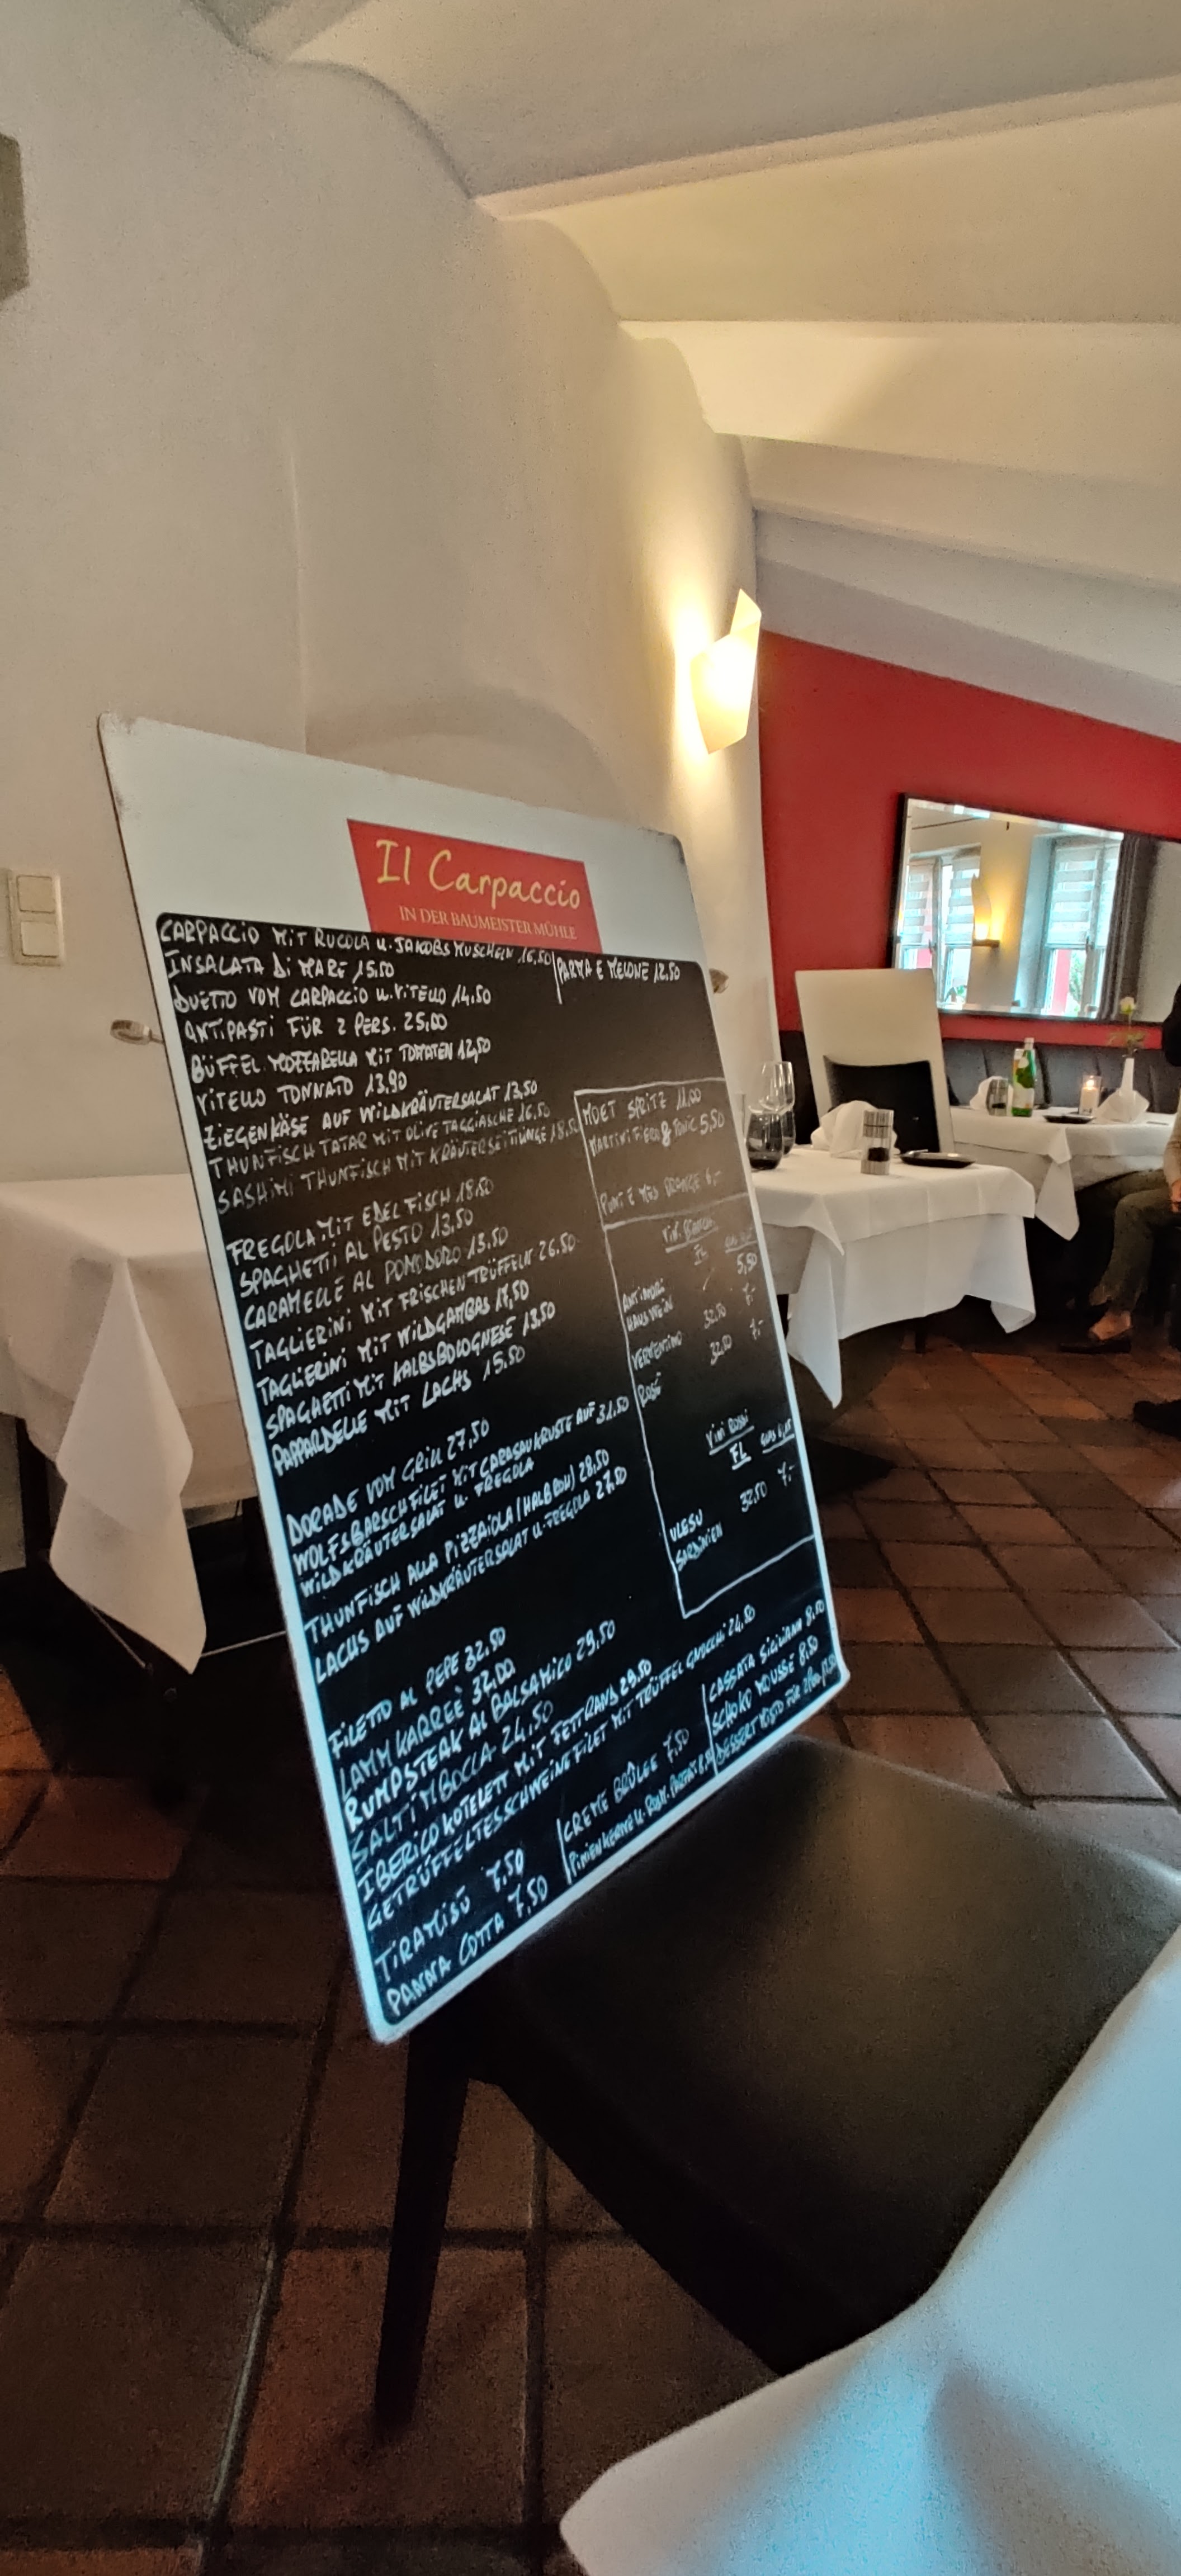 Il Carpaccio
IN DER BAUMEISTER MÜHLE
CARPACCIO MIT RUCOLA U. JAKOBSMUSCHELN 16,50
PARMA E MELONE 12.50
INSALATA DI MARE 15.50
DUETTO VOM CARPACCIO U. VITELLO 14,50
ANTIPASTI FÜR 2 PERS. 25,00
BÜFFEL MOZZARELLA MIT TOMATEN 12,50
VITELLO TONNATO 13.90
ZIEGENKÄSE AUF WILDKRÄUTERSALAT 13,50
THUNFISCH TATAR MIT OLIVE TAGGIASCHE 16,50
SASHIMI THUNFISCH MIT KRÄUTERSEITLINGE 18,50
FREGOLA MIT EDELFISCH 18.50
SPAGHETTI AL PESTO 13,50
CARAMELLE AL POMODORO 13.50
TAGLIERINI MIT FRISCHEN TRÜFFELN 26.50
TAGLIERINI MIT WILDGAMBAS 17,50
SPAGHETTI MIT KALBSBOLOGNESE 13,50
PAPPARDELLE MIT LACHS 15.50
DORADE VOM GRILL 27,50
WOLFSBARSCHFILET MIT CARASAUKRUSTE AUF 31.50
WILDKRÄUTERSALAT U. FREGOLA
THUNFISCH ALLA PIZZAIOLA (HALB ROH) 28,50
LACHS AUF WILDKRÄUTERSALAT U. FREGOLA 27,50
FILETTO AL PEPE 32,50
LAMMKARREÈ 32,00
RUMPSTEAK AL BALSAMICO 29,50
SALTIMBOCCA 24,50
IBERICO KOTELETT MIT FETTRAND 29.50
GETRÜFFELTES SCHWEINEFILET MIT TRÜFFEL GNOCCHI 24,50
TIRAMISÙ 7,50
PANNA COTTA 7,50
CREME BRÛLEE 7,50
PINIENKERNE U. PARFAIT
CASSATA SICILIANA 8,50
SCHOKO MOUSSE 8,50
DESSERT MISTO FÜR
MOET SPRITZ 11,00
MARTINI FIERO & TONIC 5,50
PUNT E MES ORANGE 6,-
VINI BIANCHI
FL
ANTINORI
HAUSWEIN / 5,50
VERMENTINO 32.50 7,-
ROSÉ 32,50 7,-
VINI ROSSI
FL
ULESU
SARDINIEN 32,50 7,-